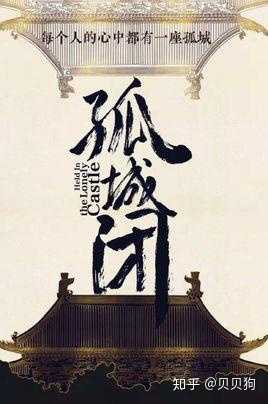 每个人的心中都有一座孤城
孤
城
闭
Held In
the Lonely
Castle
知乎 @贝贝狗